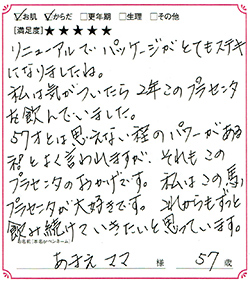 ☑お肌 ☑からだ □更年期 □生理 □その他
[満足度]★★★★★
リニューアルで パッケージがとてもステキ
になりましたね。
私は気がついたら 2年このプラセンタ
を飲んでいました。
57才とは思えない程のパワーがある
程とよく言われますが、それもこの
プラセンタのおかげです。私はこの馬
プラセンタが大好きです。これからもずっと
飲み続けていきたいと思っています。
お名前(本名かペンネーム)
あまえ ママ 様 57歳